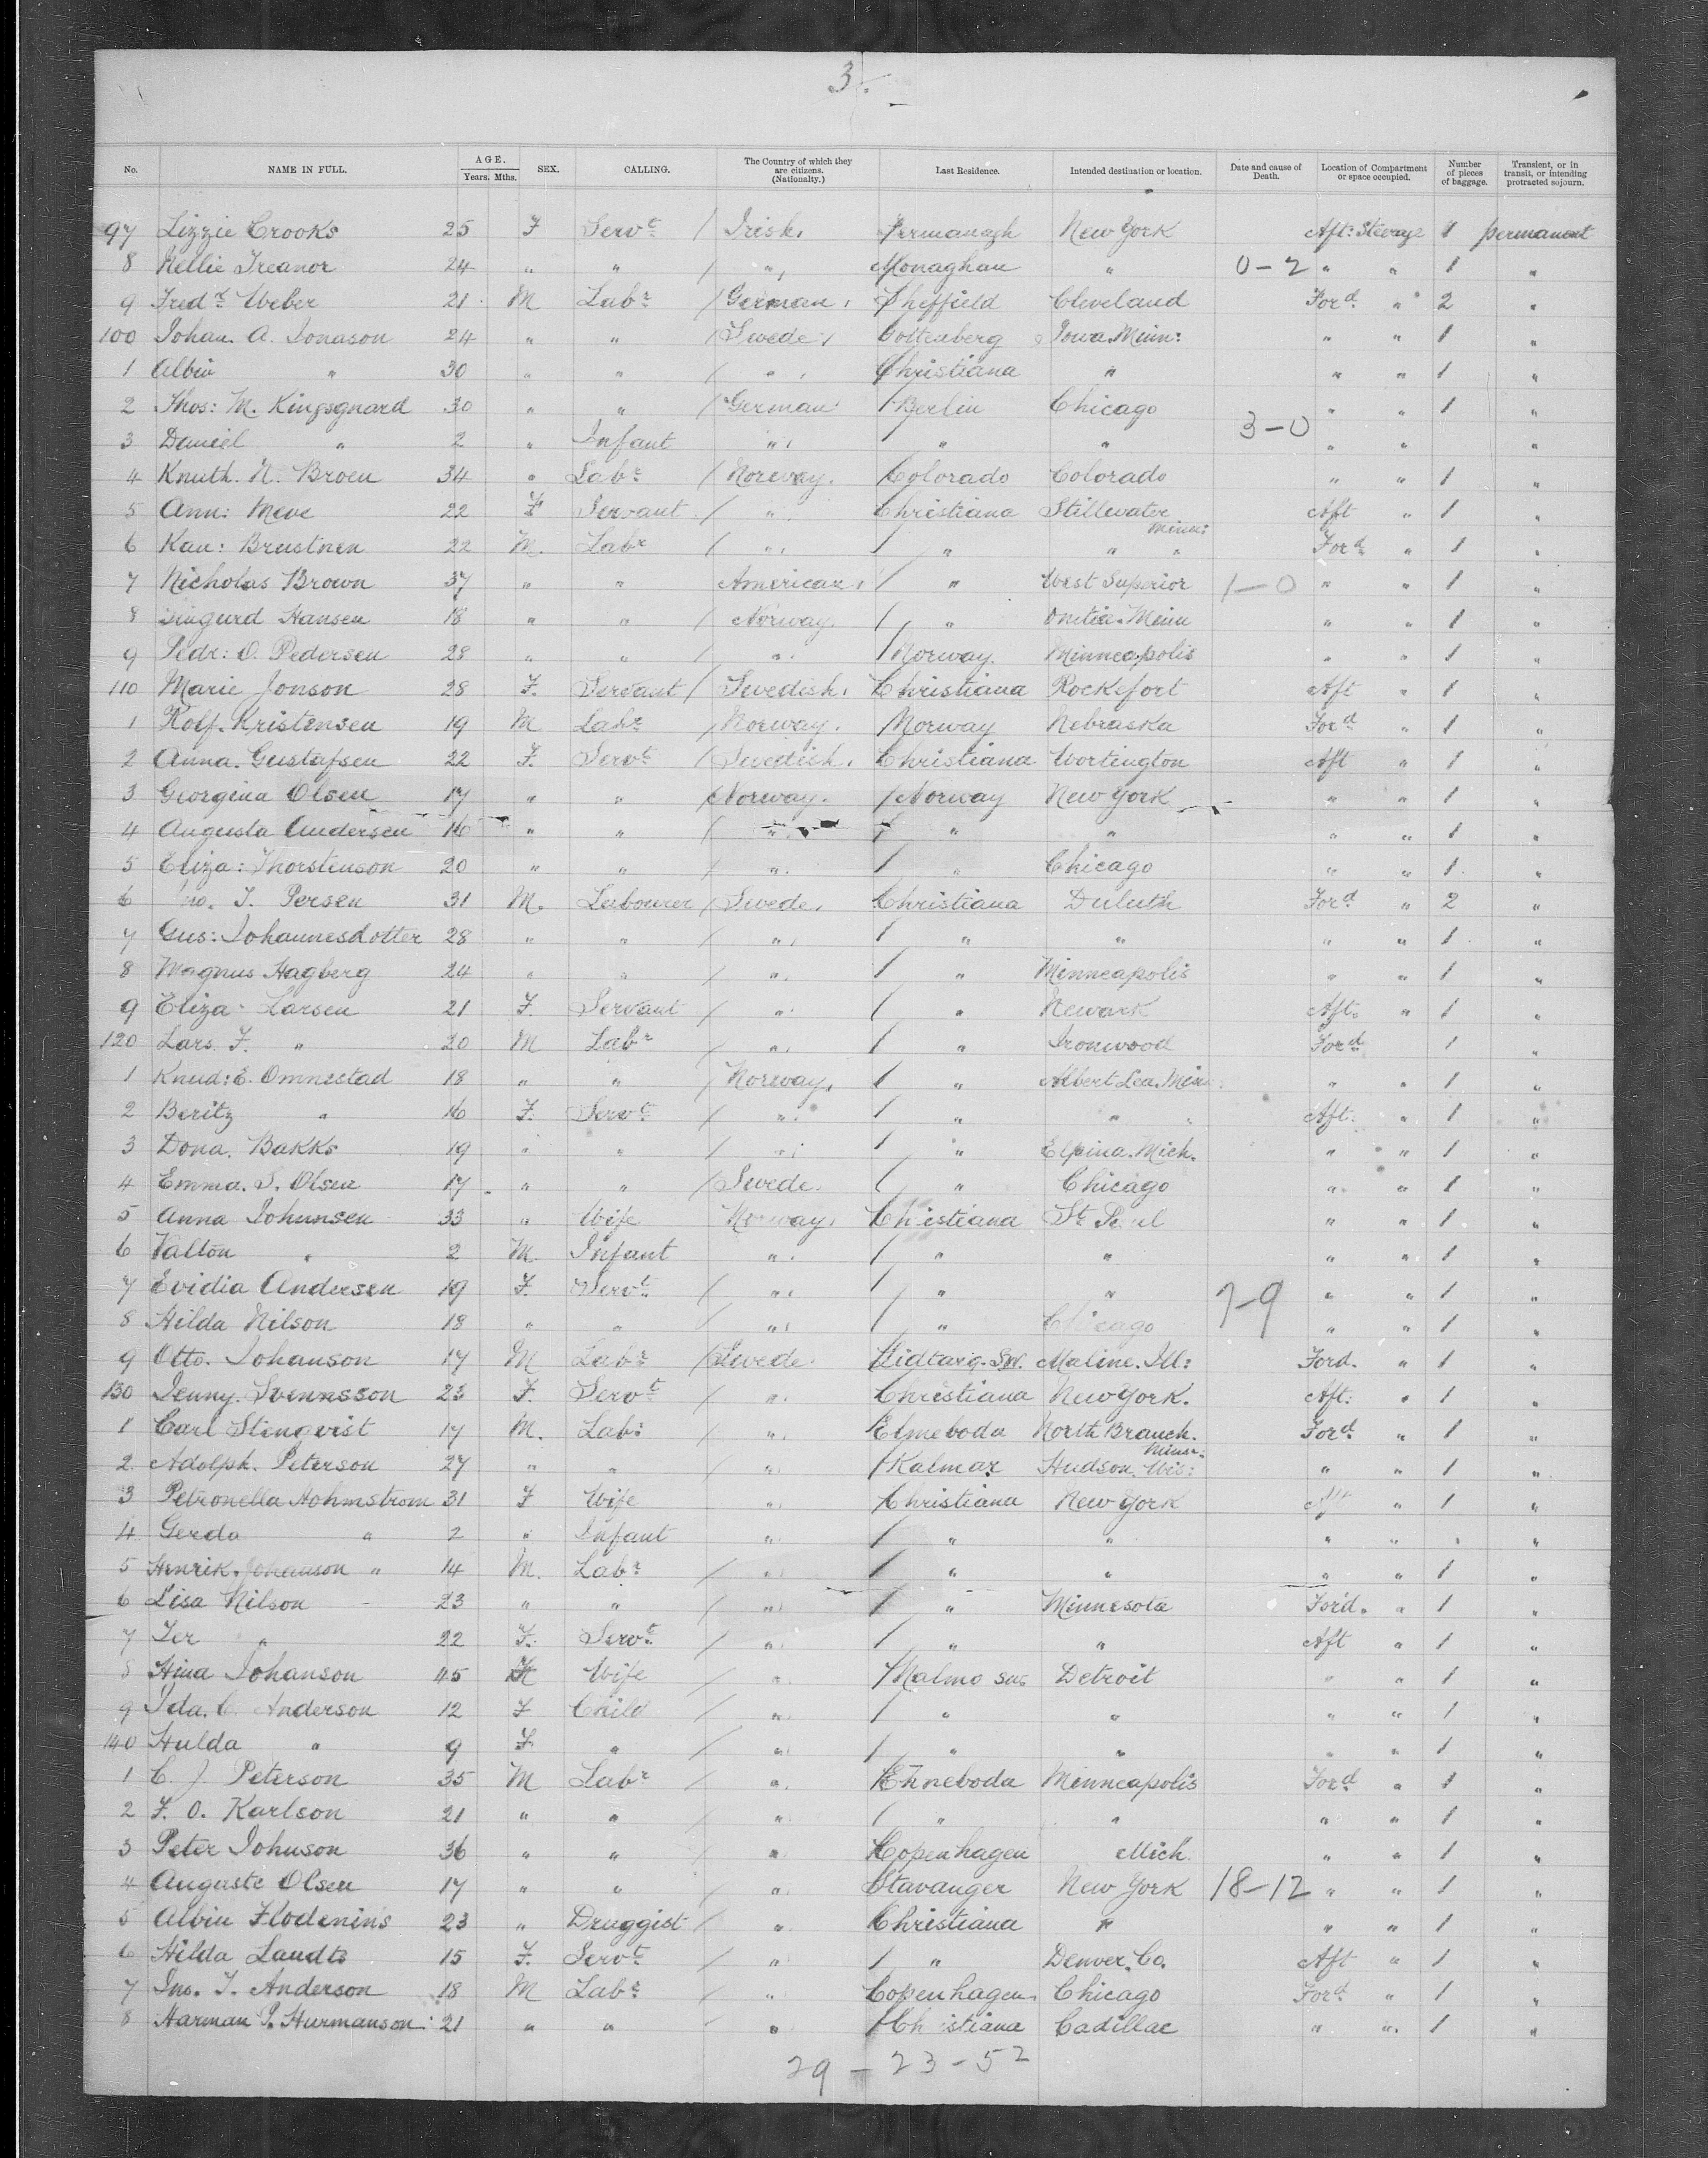 3.
No. NAME IN FULL. AGE. Years. Mths. SEX. CALLING. The Country of which they are citizens. (Nationalty.) Last Residence. Intended destination or location. Date and cause of Death. Location of Compartment or space occupied. Number of pieces of baggage. Transient, or in transit, or intending protracted sojourn.
97 Lizzie Crooks 25 F Servt / Irish. Fermanagh New York Aft: Steerage 1 permanent
8 Nellie Treanor 24 " " / " Monaghan " 0-2 " " 1 "
9 Fredk Weber 21 M Labr / German. Sheffield Cleveland Ford " 2 "
100 Johan. A. Jonason 24 " " / Swede Gottenberg Iowa. Minn: " " 1 "
1 Albin " 30 " " / " Christiana " " " 1 "
2 Thos: M. Kingsgnard 30 " " / German / Berlin Chicago " " 1 "
3 Daniel " 2 " Infant " / " " 3-0 " " "
4 Knuth. N. Broen 34 " Labr / Norway. / Colorado Colorado " " 1 "
5 Ann: Meve 22 F Servant / " Christiana Stillwater Minn: Aft " 1 "
6 Kan: Brustnen 22 M. Labr / " / " " " Ford " 1 "
7 Nicholas Brown 37 " " American / " West Superior 1-0 " " 1 "
8 Hansen 18 " " Norway / " Minn " " 1 "
9 Pedr: O. Pedersen 28 " " / " / Norway. Minneapolis " " 1 "
110 Marie Jonson 28 F. Servant / Swedish. Christiana Rockefort Aft " 1 "
1 Rolf. Kristensen 19 M Labr / Norway. Norway Nebraska Ford " 1 "
2 Anna. Gustafsen 22 F. Servt / Swedish. Christiana Wortington Aft " 1 "
3 Georgina Olsen 17 " " / Norway. / Norway New York " " 1 "
4 Augusta Andersen 16 " " / " / " " " " 1 "
5 Eliza: Thorstenson 20 " " / " / " Chicago " " 1 "
6 T. Persen 31 M. Labourer / Swede. Christiana Duluth Ford " 2 "
7 Gus: Johannesdotter 28 " " / " / " " " " 1 "
8 Magnus Hagberg 24 " " / " / " Minneapolis " " 1 "
9 Eliza: Larsen 21 F. Servant / " / " Newark Aft: " 1 "
120 Lars. F. " 20 M Labr / " / " Ironwood Ford 1 "
1 Knud: E. Omnestad 18 " " / Norway. / " Albert Lea. Minn " " 1 "
2 Beritz " 16 F. Servt / " / " " " Aft. " 1 "
3 Dona. Bakks 19 " " / " / " Elpina. Mich. " " 1 "
4 Emma. S. Olsen 17 " " / Swede. / " Chicago " " 1 "
5 Anna Johansen 33 " Wife Norway. Christiana St. Paul " " 1 "
6 Valton " 2 M. Infant " / " " " " 1 "
7 Evidia Andersen 19 F. Servt / " / " " 7-9 " " 1 "
8 Hilda Nilson 18 " " / " / " Chicago " " 1 "
9 Otto. Johanson 17 M Labr / Swede. Sw. Maline. Ill: Ford. " 1 "
130 Jenny. Svennsson 23 F. Servt / " Christiana New York. Aft: " 1 "
1 Carl Stenqvist 17 M. Labr / " Elmeboda North Branch. Minn: Ford. " 1 "
2 Adolph. Peterson 27 " " / " / Kalmar Hudson Wis: " " 1 "
3 Petronella Hohmstrom 31 F Wife " Christiana New York Aft " 1 "
4 Gerda " 2 " Infant " / " " " " " "
5 Henrik. Johanson " 14 M. Labr / " / " " " " 1 "
6 Lisa Nilson 23 " " / " / " Minnesota Ford. " 1 "
7 Ter " 22 F. Servt / " / " " Aft " 1 "
8 Hina Johanson 45 Wife / " / Malmo Sw: Detroit " " 1 "
9 Ida. C. Anderson 12 F Child / " / " " " " 1 "
140 Hulda " 9 F " / " / " " " " 1 "
1 C. J. Peterson 35 M Labr / " Ehneboda Minneapolis Ford " 1 "
2 F. O. Karlson 21 " " / " / " " " " 1 "
3 Peter Johnson 36 " " / " Copenhagen Mich. " " 1 "
4 Auguste Olsen 17 " " / " Stavanger New York 18-12 " " 1 "
5 Albin Flodenins 23 " Druggist / " Christiana " " " 1 "
6 Hilda Landts 15 F. Servt / " / " Denver. Co. Aft " 1 "
7 Jno. T. Anderson 18 M Labr / " Copenhagen Chicago Ford " 1 "
8 Harman P. Hurmanson 21 " " / " / Christiana Cadillac " " 1 "
29-23-52